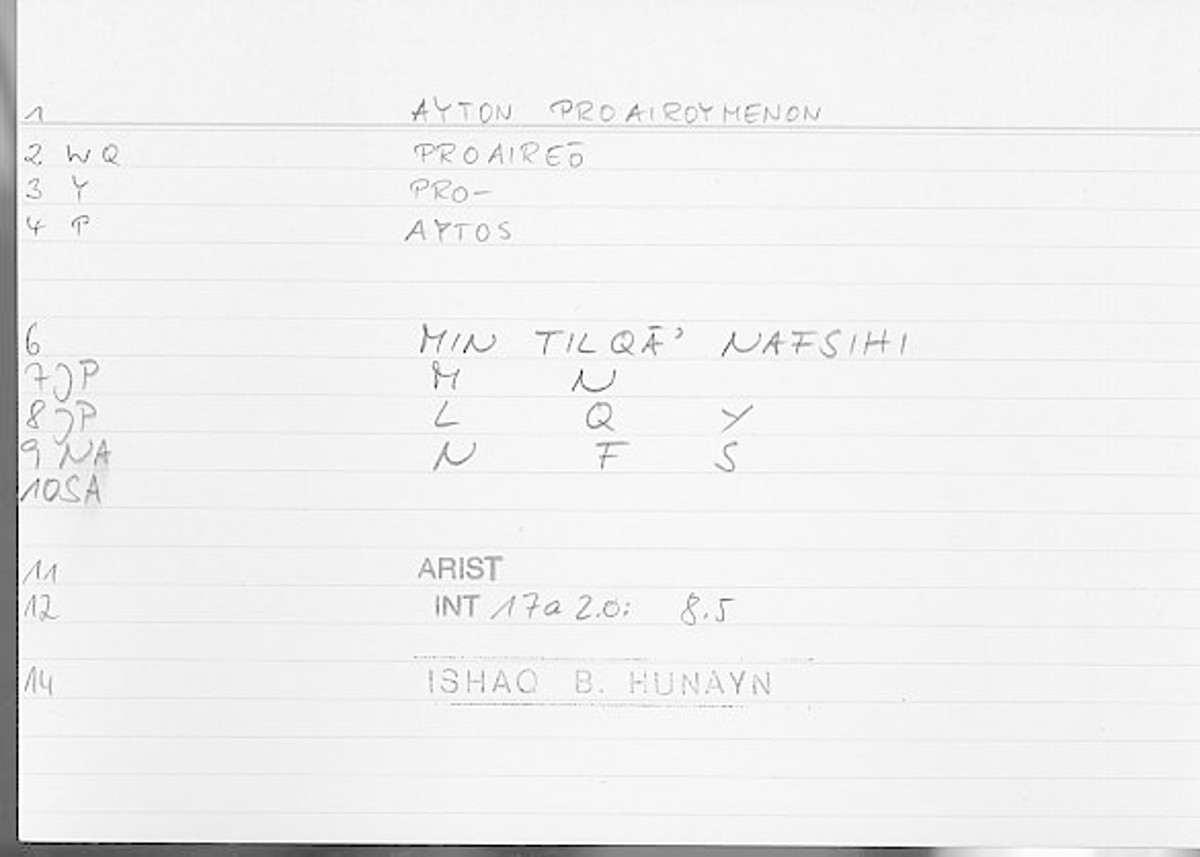 1 AYTON PROAIROYMENON
2 WQ PROAIREŌ
3 Y PRO-
4 P AYTOS
6 MIN TILQĀʾ NAFSIHI
7 JP M N
8 JP L Q Y
9 NA N F S
10 SA
11 ARIST
12 INT 17a 20: 8.5
14 ISHAQ B. HUNAYN